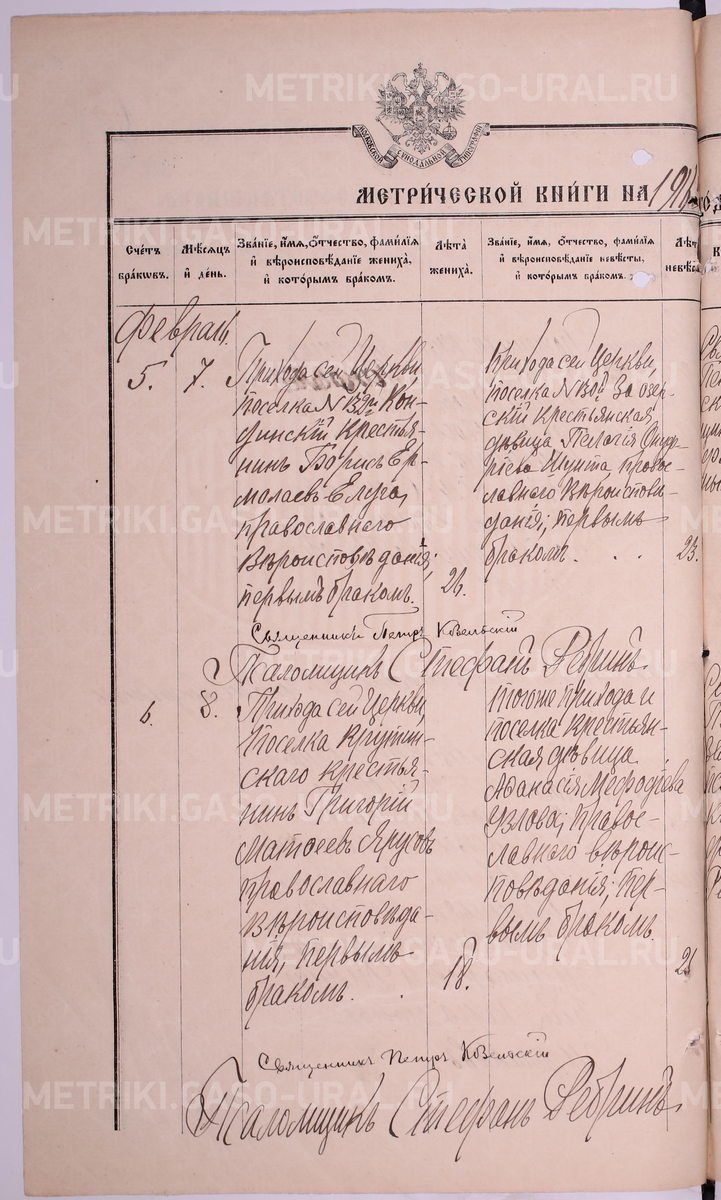 МОСКОВСКОЙ СѴНОДАЛЬНОЙ ТИПОГРАФІИ
МЕТРИ́ЧЕСКОЙ КНИ́ГИ НА 191
Сче́тъ бра́кѡвъ.
Мѣ́сяцъ и҆ де́нь.
Зва́нїе, и҆́мя, ѻ҆́тчество, фами́лїя
и҆ вѣроисповѣ́данїе жениха̀,
и҆ кото́рымъ бра́комъ.
Лѣ́та жениха̀.
Зва́нїе, и҆́мя, ѻ҆́тчество, фами́лїя
и҆ вѣроисповѣ́данїе невѣ́сты,
и҆ кото́рымъ бра́комъ.
Лѣт
невѣс
Февраль
5.
7.
Прихода сей Церкви,
поселка N 132го Кон-
динскій крестья-
нинъ Борисъ Ер-
молаевъ Елуга,
православнаго
Вѣроисповѣданія;
первымъ бракомъ.
26.
Прихода сей Церкви,
поселка N 130й За озер-
скій крестьянская
дѣвица Пелагія Онуф-
ріева Шунта, право-
славнаго Вѣроисповѣ-
данія; первымъ
бракомъ.
23.
Священникъ Петръ Ковельскій
Псаломщикъ Стефанъ Ребринъ
6.
8.
Прихода сей Церкви,
поселка Крутин-
скаго крестья-
нинъ Григорій
Матѳеевъ Ярусовъ
православнаго
Вѣроисповѣда-
нія, первымъ
бракомъ.
18.
Тогоже прихода и
поселка крестьян-
ская дѣвица
Аѳанасія Меѳодіева
Узлова; право-
славнаго вѣроис-
повѣданія; пер-
вымъ бракомъ.
21
Священникъ Петръ Ковельскій
Псаломщикъ Стефанъ Ребринъ
METRIKI.GASO-URAL.RU